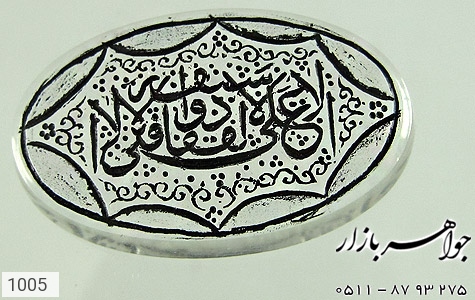 لا فتی الا علی لا سیف الا ذوالفقار
جواهر بازار
۰۵۱۱ - ۸۷ ۹۳ ۲۷۵
1005